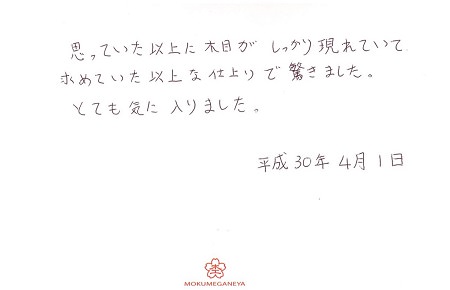 思っていた以上に木目がしっかり現れていて
求めていた以上な仕上りで驚きました。
とても気に入りました。
平成30年4月1日
MOKUMEGANEYA